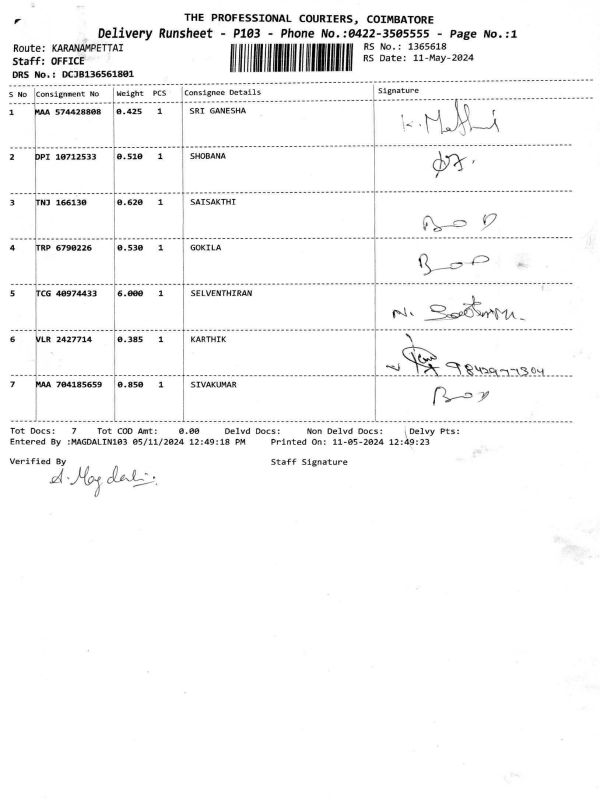 THE PROFESSIONAL COURIERS, COIMBATORE
Delivery Runsheet - P103 - Phone No.:0422-3505555 - Page No.:1
Route: KARANAMPETTAI RS No.: 1365618
Staff: OFFICE RS Date: 11-May-2024
DRS No.: DCJB136561801
S No Consignment No Weight PCS Consignee Details Signature
1 MAA 574428808 0.425 1 SRI GANESHA K. Mathi
2 DPI 10712533 0.510 1 SHOBANA
3 TNJ 166130 0.620 1 SAISAKTHI BOD
4 TRP 6790226 0.530 1 GOKILA BOD
5 TCG 40974433 6.000 1 SELVENTHIRAN N.
6 VLR 2427714 0.385 1 KARTHIK 9842977304
7 MAA 704185659 0.850 1 SIVAKUMAR BOD
Tot Docs: 7 Tot COD Amt: 0.00 Delvd Docs: Non Delvd Docs: Delvy Pts:
Entered By :MAGDALIN103 05/11/2024 12:49:18 PM Printed On: 11-05-2024 12:49:23
Verified By Staff Signature
A. Magdalin